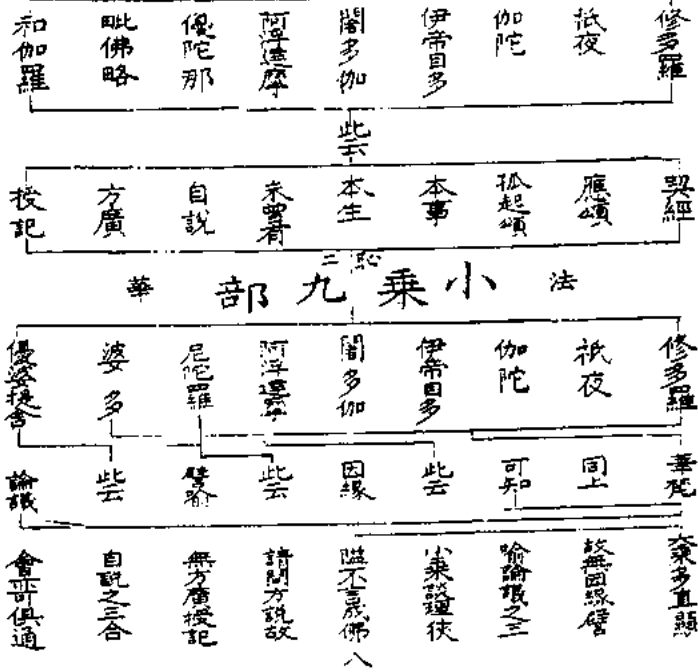 修多羅
祇夜
伽陀
伊帝目多
闍多伽
阿浮達摩
優陀那
毗佛略
和伽羅
此云
契經
應頌
孤起頌
本事
本生
未曾有
自說
方廣
授記
二
法
小乘九部
華
修多羅
祇夜
伽陀
伊帝目多
闍多伽
阿浮達摩
尼陀羅
婆多
優婆提舍
華梵
同上
可知
此云
因緣
此云
譬喻
此云
論議
大乘多直顯
故無因緣譬
喻論議之三
小乘談理狹
隘不言成佛
請問方說故
無方廣授記
自說之三合
會亦俱通
八